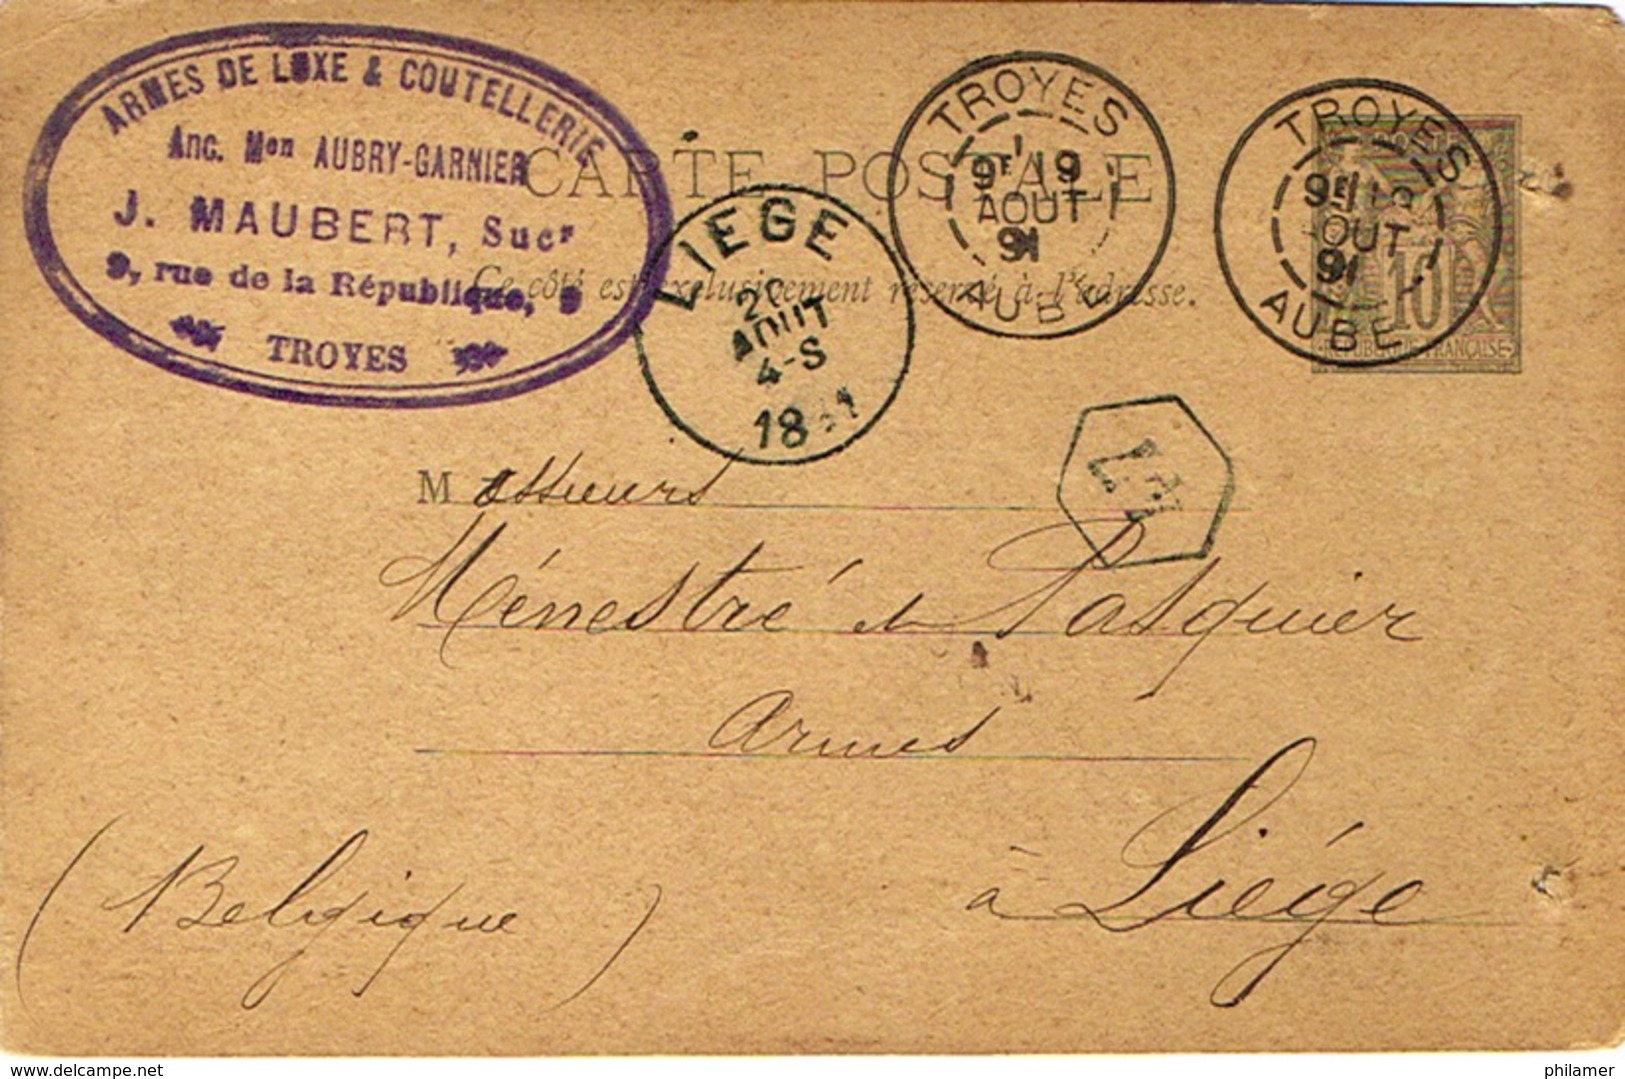 ARMES DE LUXE & COUTELLERIE
Anc. Mon AUBRY-GARNIER
J. MAUBERT, Sucr
9, rue de la République, 9
TROYES
CARTE POSTALE
Ce côté est exclusivement réservé à l'adresse.
TROYES
9E 19
AOUT
91
AUBE
TROYES
9E
OUT
91
AUBE
10
REPUBLIQUE FRANÇAISE
LIEGE
20
AOUT
4-S
1891
Messieurs
Ménestré & Pasquier
Armes
à Liége
(Belgique)
philamer